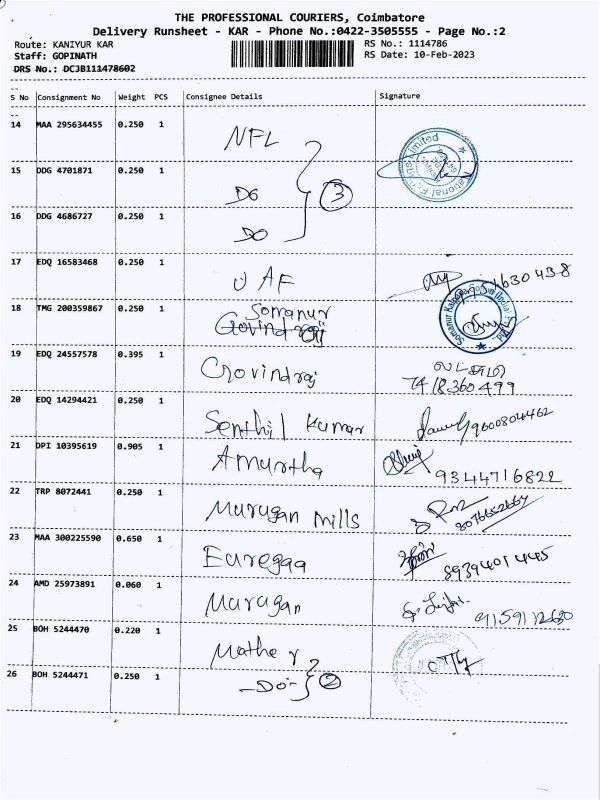 THE PROFESSIONAL COURIERS, Coimbatore
Delivery Runsheet - KAR - Phone No.:0422-3505555 - Page No.:2
Route: KANIYUR KAR RS No.: 1114786
Staff: GOPINATH RS Date: 10-Feb-2023
DRS No.: DCJB111478602
S No Consignment No Weight PCS Consignee Details Signature
14 MAA 295634455 0.250 1 NFL
15 DDG 4701871 0.250 1 DG 3
16 DDG 4686727 0.250 1 DO
17 EDQ 16583468 0.250 1 UAF
18 TMG 200359867 0.250 1 Somanur
Govindraj
19 EDQ 24557578 0.395 1 Govindraj
7418360499
20 EDQ 14294421 0.250 1 Senthil Kumar 9600304462
21 DPI 10395619 0.905 1 Amurtha
9344716822
22 TRP 8072441 0.250 1 Murugan Mills
23 MAA 300225590 0.650 1 Euregaa 8939401445
24 AMD 25973891 0.060 1 Murugan
25 BOH 5244470 0.220 1 Mather
26 BOH 5244471 0.250 1 -Do- 2